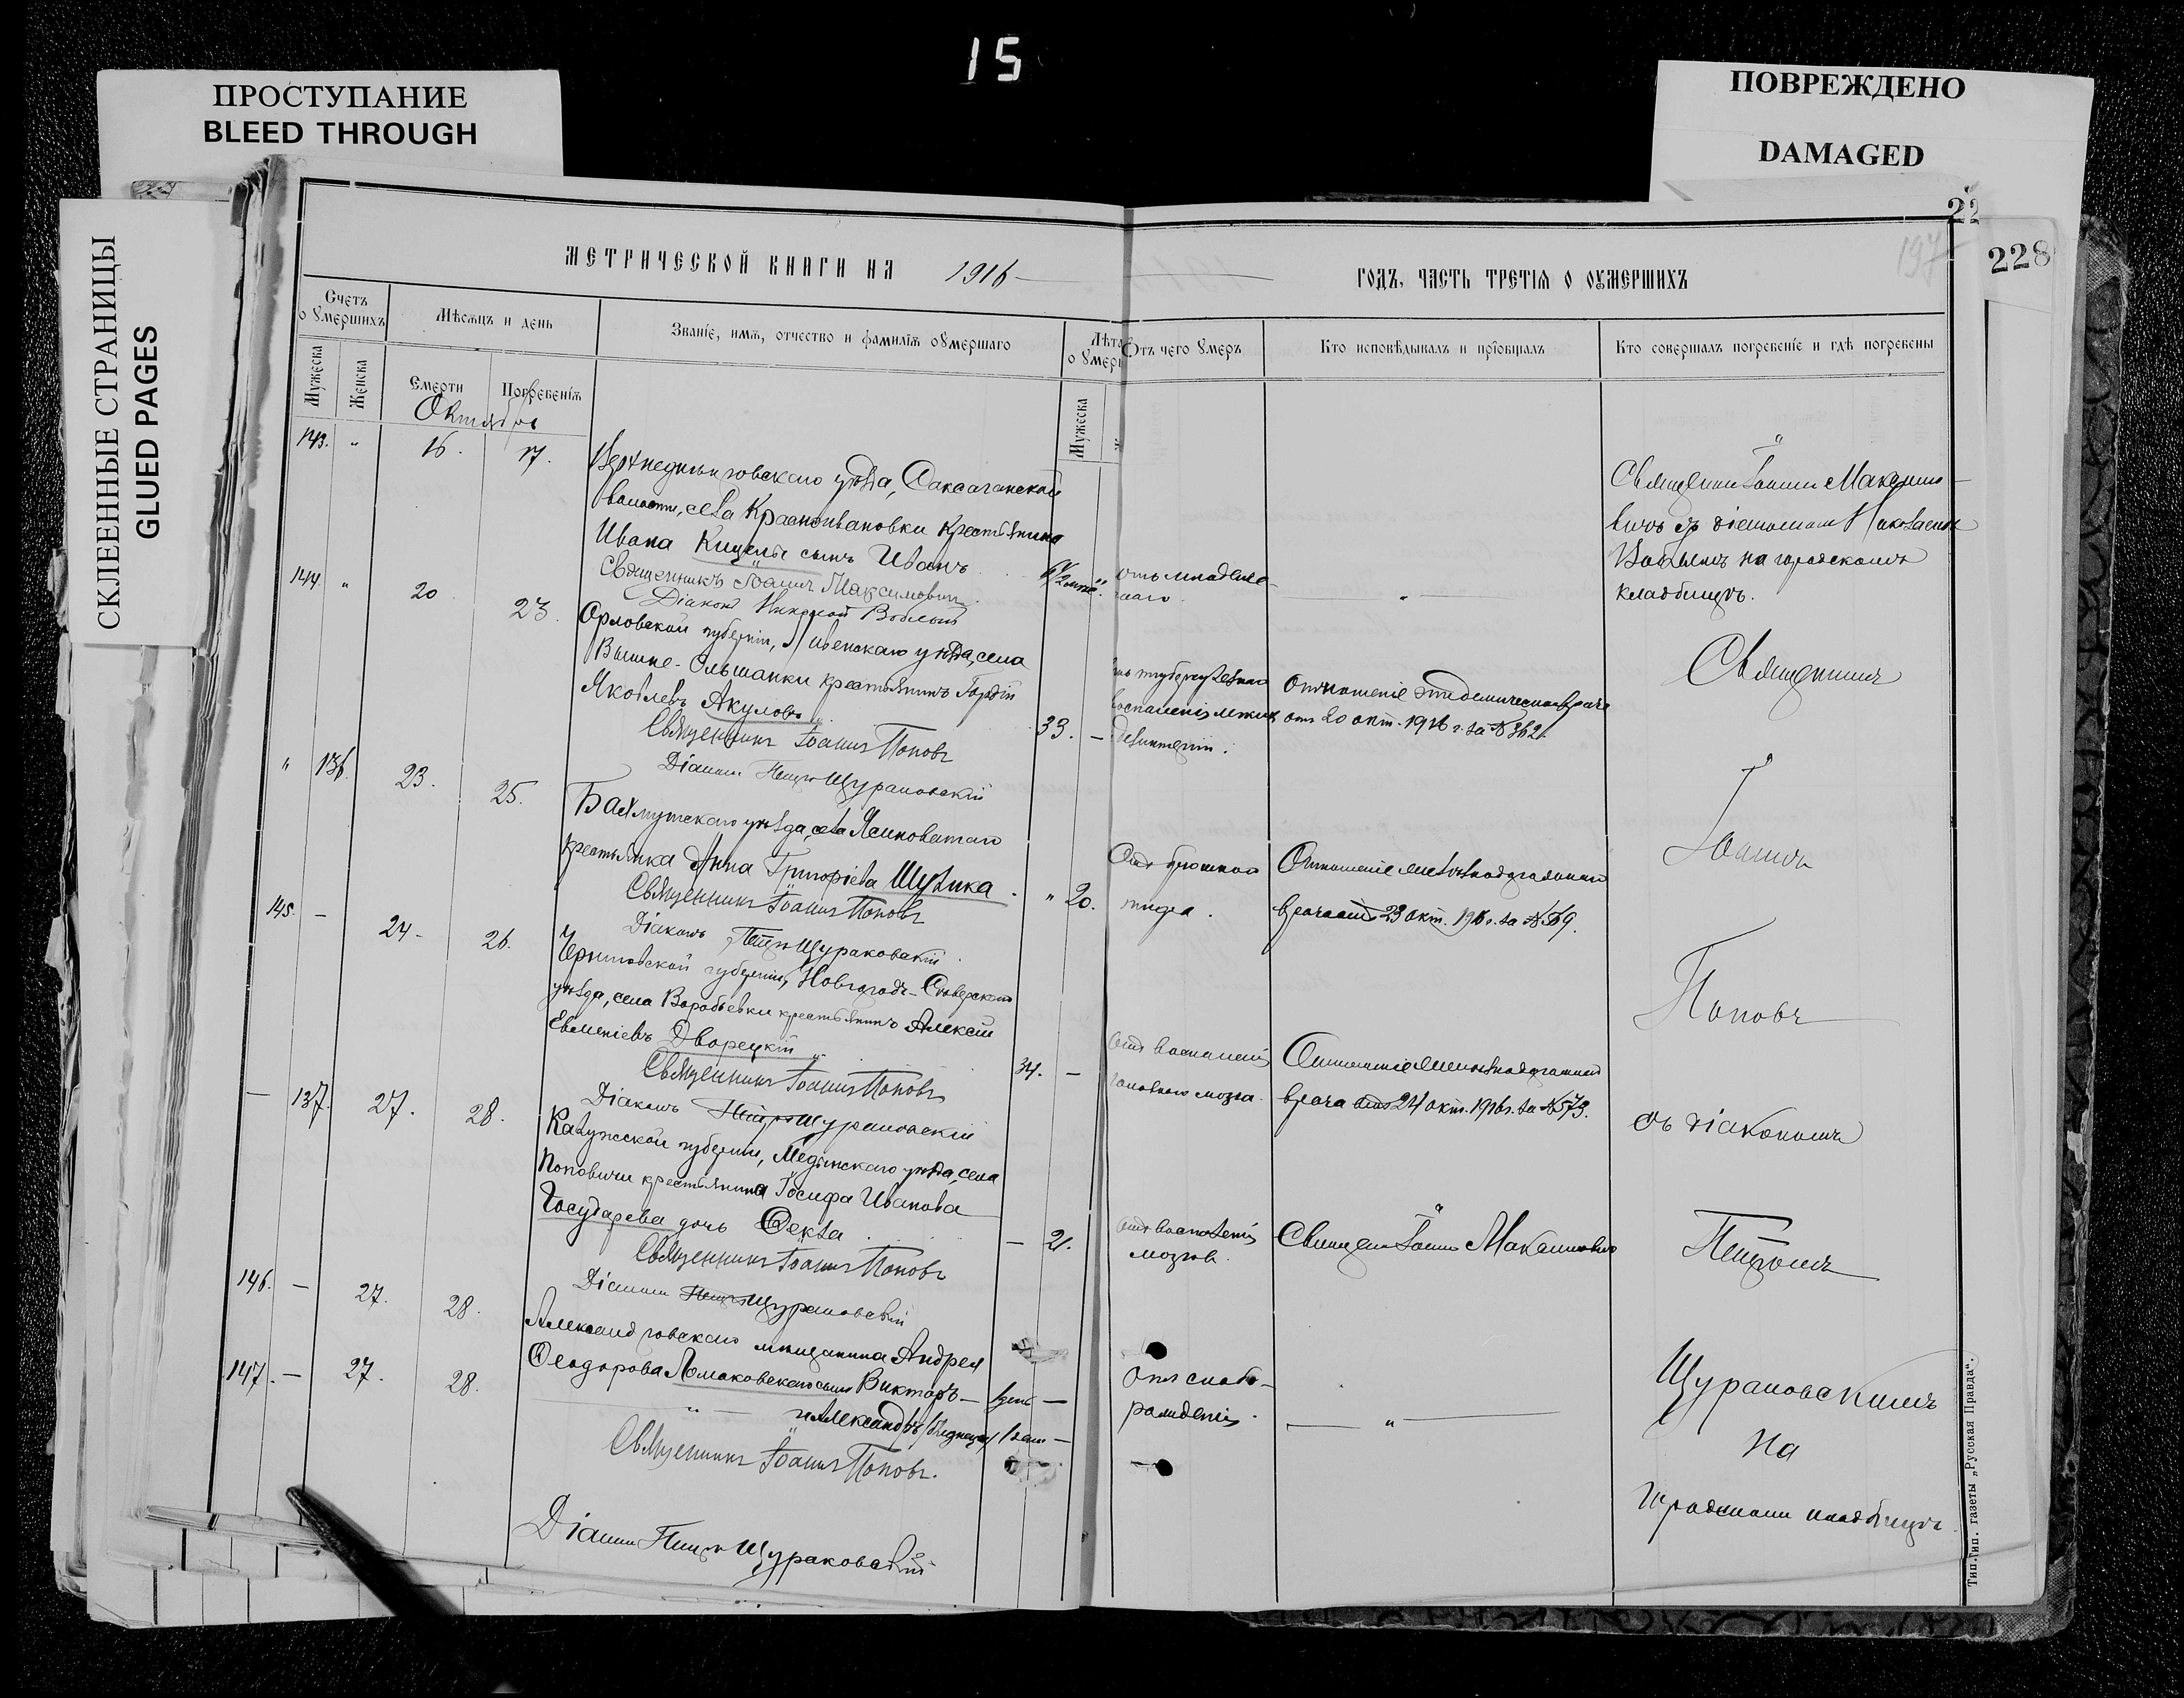 15
ПРОСТУПАНИЕ
BLEED THROUGH
ПОВРЕЖДЕНО
DAMAGED
СКЛЕЕННЫЕ СТРАНИЦЫ
GLUED PAGES
22
197
228
МЕТРИЧЕСКОЙ КНИГИ НА 1916
ГОДЪ, ЧАСТЬ ТРЕТІЯ О ОУМЕРШИХЪ
Счетъ оумершихъ
Мѣсяцъ и день
Званіе, имя, отчество и фамилія оумершаго
Лѣта оумер
Отъ чего умеръ
Кто исповѣдывалъ и пріобщалъ
Кто совершалъ погребеніе и гдѣ погребены
Мужеска
Женска
Смерти
Погребенія
Мужеска
Октябрь
143. " 16. 17.
Верхнеднѣпровскаго уѣзда, Саксаганской
волости, села Краснoивановки крестьянина
Ивана Кицелы сынъ Иванъ
Священникъ Іоаннъ Максимовичъ
Діаконъ Николай Воблый
отъ младенче-
скаго.
"
Священникъ Іоаннъ Максимо-
вичъ съ діакономъ Николаемъ
Воблымъ на городскомъ
кладбищѣ.
144. " 20 23.
Орловской губерніи, Ливенскаго уѣзда, села
Вышне-Ольшанки крестьянинъ Гордій
Яковлевъ Акуловъ 33. —
Священникъ Іоаннъ Поповъ
Діаконъ Петръ Щураковскій
туберкулезнаго
воспаленія легкихъ
дезинтеріи.
Отношеніе эпидемическаго врача
отъ 20 окт. 1916 г. за № 362.
" 136. 23. 25.
Бахмутскаго уѣзда, села Ясиноватаго
крестьянка Анна Григоріева Шулика. " 20.
Священникъ Іоаннъ Поповъ
Діаконъ Петръ Щураковскій
Отъ брюшного
тифа.
Отношеніе
врача отъ 23 окт. 1916 г. за № 569.
145. — 24 26.
Черниговской губерніи, Новгородъ-Сѣверскаго
уѣзда, села Воробьевки крестьянинъ Алексій
Евменіевъ Дворецкій 34. —
Священникъ Іоаннъ Поповъ
Діаконъ Петръ Щураковскій
Отъ воспаленія
головного мозга.
Отношеніе
врача отъ 24 окт. 1916 г. за № 573.
— 137. 27. 28.
Калужской губерніи, Медынскаго уѣзда, села
Поповичи крестьянина Іосифа Иванова
Государева дочь Ѳекла — 21.
Священникъ Іоаннъ Поповъ
Діаконъ Петръ Щураковскій
Отъ воспаленія
мозговъ.
Священникъ Іоаннъ Максимовичъ
146. — 27. 28.
Александровскаго мѣщанина Андрея
Ѳеодорова Ломаковскаго сынъ Викторъ — 1 день —
147. — 27. 28.
" — и Александръ /близнецы/ 1 день —
Священникъ Іоаннъ Поповъ.
Діаконъ Петръ Щураковскій
Отъ слабо-
рожденія.
"
Священникъ
Іоаннъ
Поповъ
съ діакономъ
Петромъ
Щураковскимъ
на
городскомъ кладбищѣ
Тип. газеты „Русская Правда“.